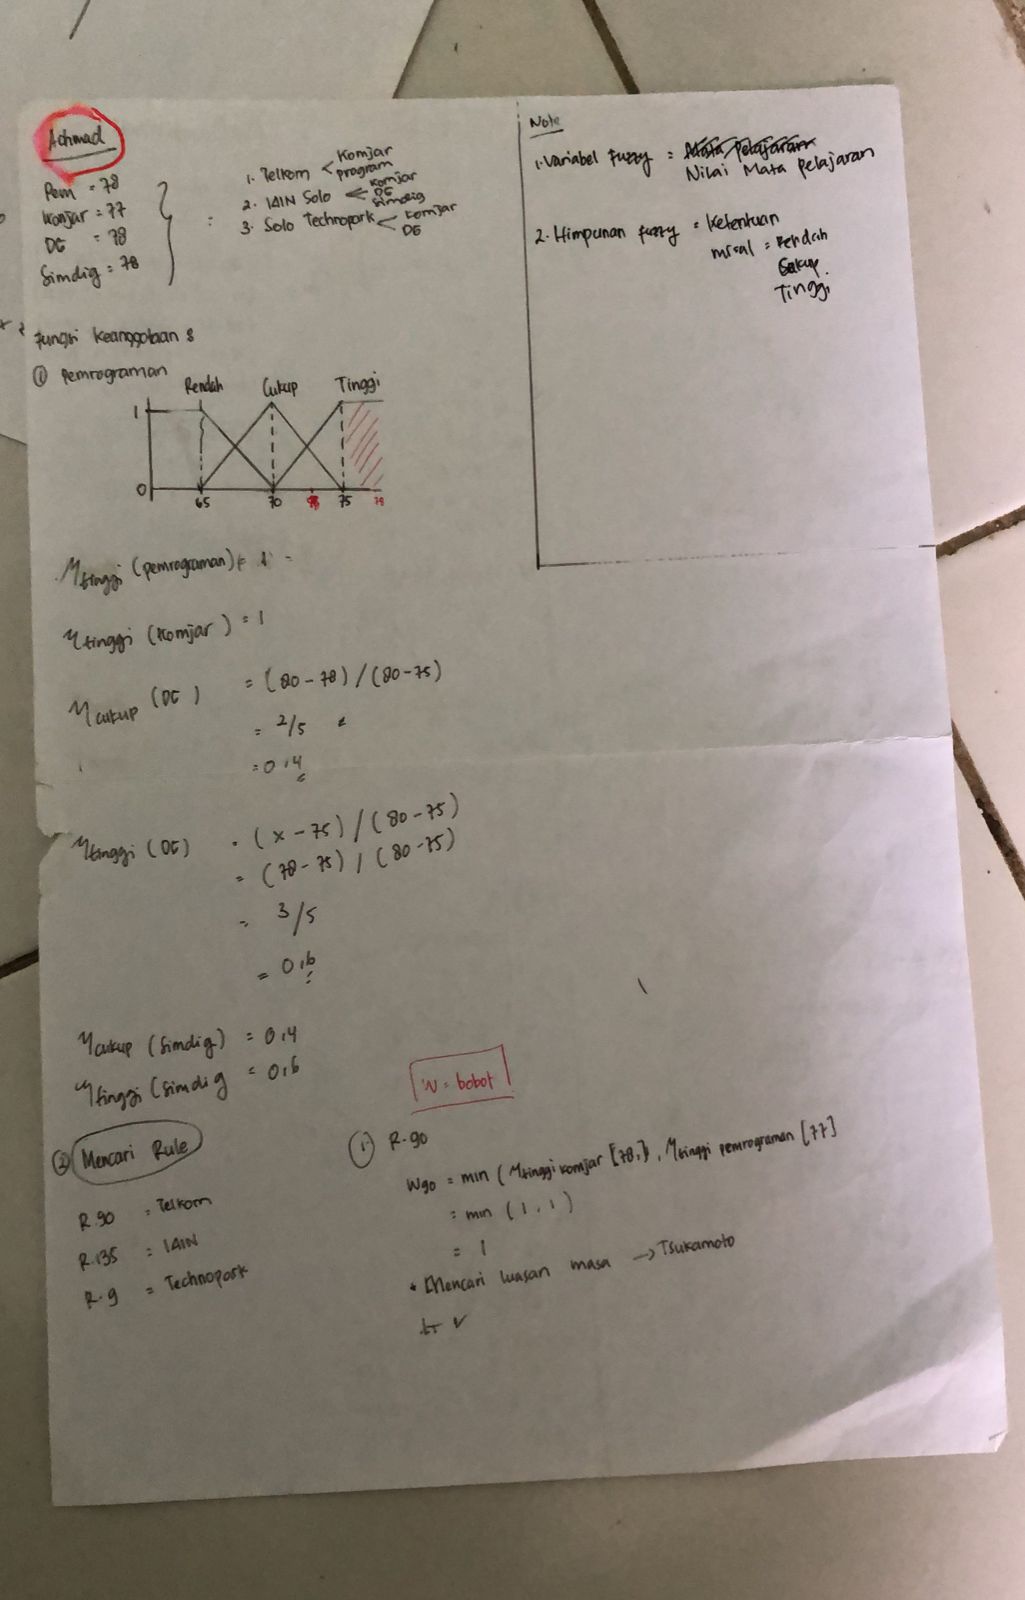 Achmad
Pem = 78
Komjar = 77
DG = 78
Simdig = 78
=
1. Telkom < Komjar
program
2. IAIN Solo < Komjar
DG
Simdig
3. Solo Technopark < Komjar
DG
Note
1. Variabel Fuzzy = Mata Pelajaran
Nilai Mata Pelajaran
2. Himpunan fuzzy = Ketentuan
misal = Rendah
Cukup
Tinggi
Fungsi Keanggotaan :
① Pemrograman
Rendah Cukup Tinggi
1
0
65 70 75 78
M tinggi (pemrograman) = 1
M tinggi (Komjar) = 1
M cukup (DG) = (80 - 78) / (80 - 75)
= 2/5
= 0,4
M tinggi (DG) = (x - 75) / (80 - 75)
= (78 - 75) / (80 - 75)
= 3/5
= 0,6
M cukup (Simdig) = 0,4
M tinggi (Simdig = 0,6
W = bobot
② Mencari Rule
R.90 = Telkom
R.135 = IAIN
R.9 = Technopark
① R.90
W90 = min (M tinggi komjar [78,]), M tinggi pemrograman [77]
= min (1,1)
= 1
* Mencari luasan masa → Tsukamoto